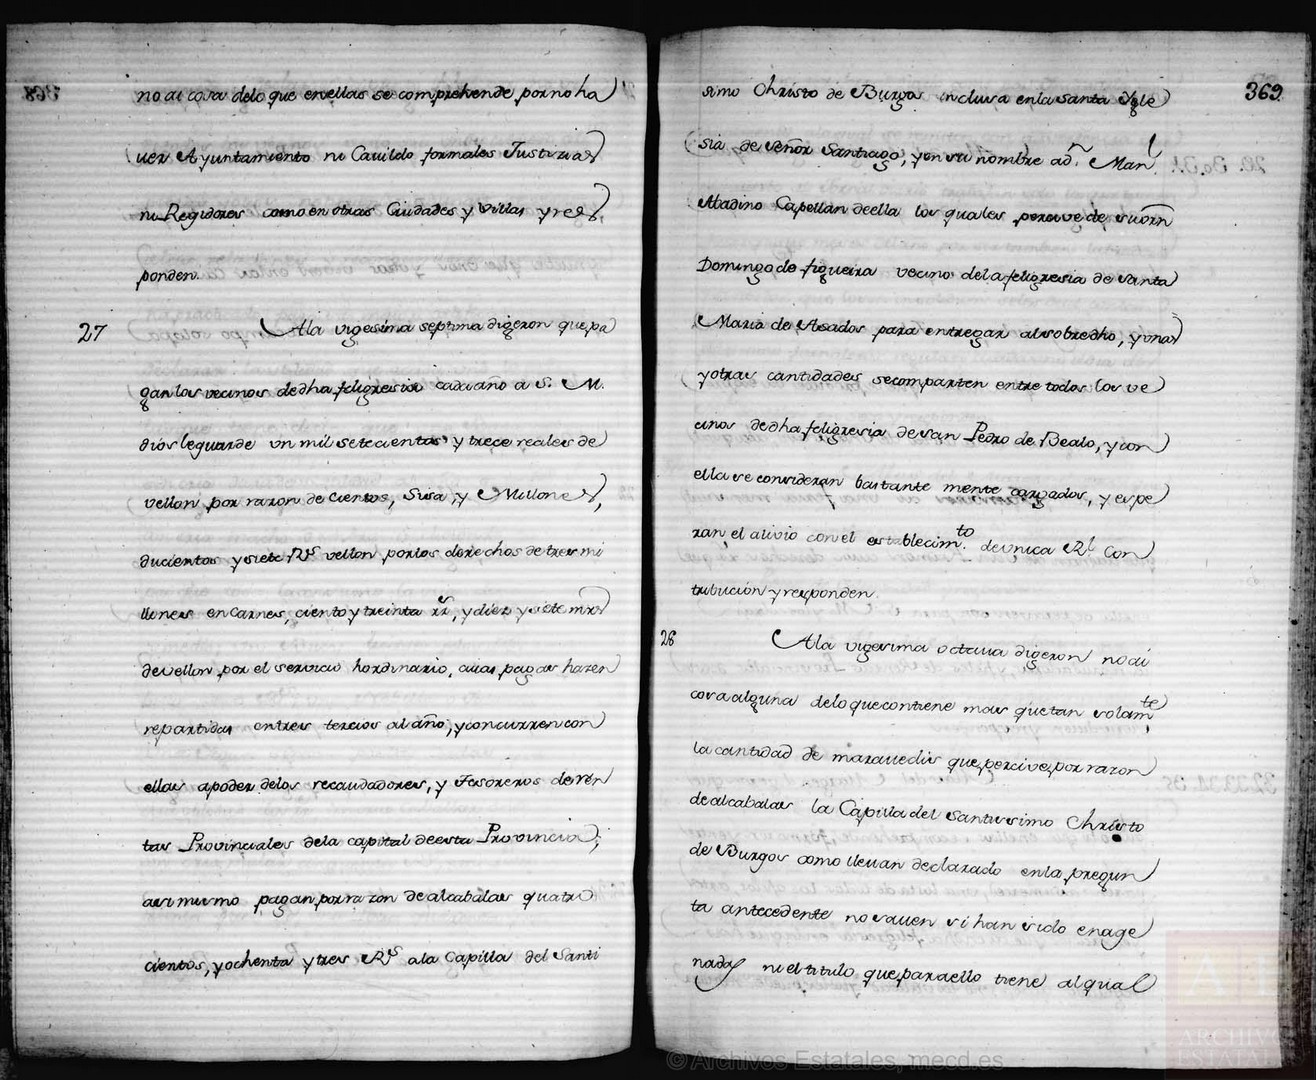 no ai cosa delo que en ellas se comprehende por no ha
uer Ayuntamiento ni Cauildo formales Justizias
ni Regidores como en otras Ciudades y Villas y res
ponden.
27 Ala vigesima septima digeron que pa
gan los vecinos de dha feligresia cada año a S. M.
dios le guarde vn mil setecientos y trece reales de
vellon por razon de cientos, Sisa, y Millones,
ducientos y siete Rs vellon por los derechos de tres mi
llones en carnes, ciento y treinta rrs, y diez y siete mrs
de vellon por el seruicio hordinario, cuias pagas hazen
repartidas en tres tercios al año, y concurren con
ellas a poder delos recaudadores, y Tesoreros de ren
tas Prouinciales dela capital de esta Prouincia;
asi mismo pagan por razon de alcabalas quatro
cientos, y ochenta y tres Rs a la Capilla del Santi
369
simo Christo de Burgos inclusa en la santa Ygle
sia de señor Santiago, y en su nombre a dn. Manl.
Abadino Capellan de ella los quales perciue de su orn
Domingo de figueira vecino dela feligresia de santa
Maria de Asados para entregar al sobredho, y unas
y otras cantidades se comparten entre todos los ve
cinos de dha feligresia de san Pedro de Bealo, y con
ella se consideran bastante mente cargados, y espe
ran el aliuio con el establecimto. de vnica Rl. Con
tribucion y responden.
28 Ala vigesima octaua digeron no ai
cosa alguna delo que contiene mas que tan solamte,
la cantidad de marauedis que perciue por razon
de alcabalas la Capilla del Santissimo Christo
de Burgos como lleuan declarado en la pregun
ta antecedente no sauen si han sido enage
nadas ni el titulo que para ello tiene al qual
© Archivos Estatales, mecd.es
ARCHIVOS
ESTATALES